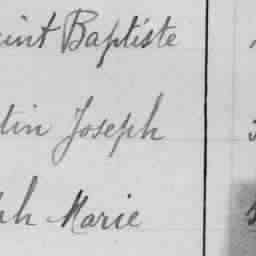 aint Baptiste
tin Joseph
ph Marie